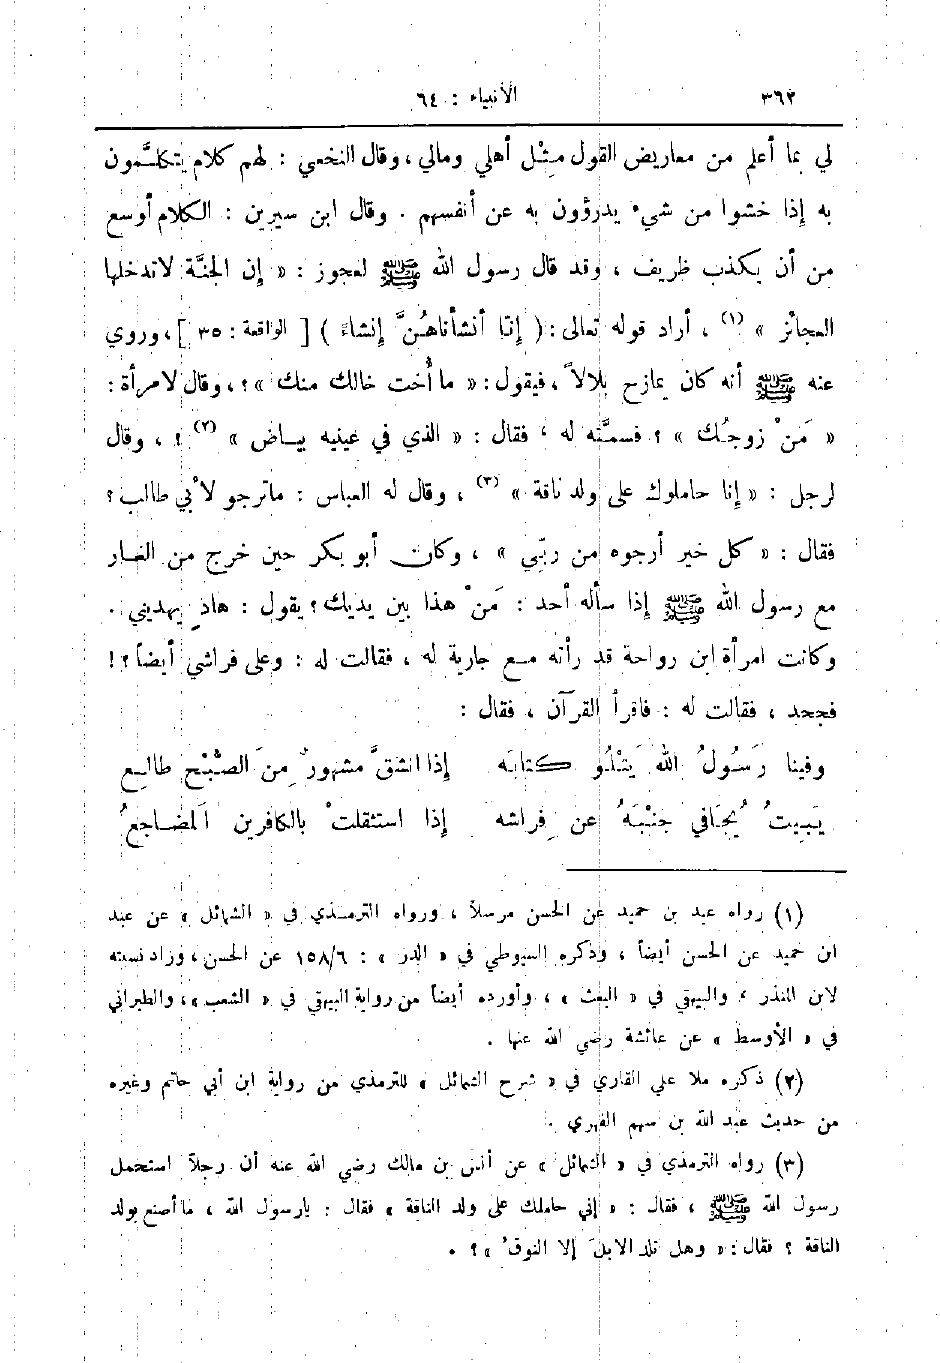 ٣٦٢
الأنبياء : ٦٤
لي بما أعلم من معاريض القول مِثْل أهلي ومالي ، وقال النخعي : لهم كلام يتكلَّمون
به إذا خشوا من شيء يدرؤون به عن أنفسهم . وقال ابن سيرين : الكلام أوسع
من أن يكذب ظريف ، وقد قال رسول الله ﷺ لعجوز : « إن الجنَّة لا تدخلها
العجائز » (١) ، أراد قوله تعالى : ( إنّا أنشأناهُنَّ إنشاءً ) [ الواقعة : ٣٥ ] ، وروي
عنه ﷺ أنه كان يمازح بلالاً ، فيقول : « ما أُخت خالك منك » ؟ ، وقال لامرأة :
« مَنْ زوجُك » ؟ فسمَّته له ، فقال : « الذي في عينيه بياض » (٢) ؟ ، وقال
لرجل : « إنا حاملوك على ولد ناقة » (٣) ، وقال له العباس : ماترجو لأبي طالب ؟
فقال : « كل خير أرجوه من ربّي » ، وكان أبو بكر حين خرج من الغار
مع رسول الله ﷺ إذا سأله أحد : مَنْ هذا بين يديك ؟ يقول : هادٍ يهديني .
وكانت امرأة ابن رواحة قد رأته مع جارية له ، فقالت له : وعلى فراشي أيضاً ؟ !
فجحد ، فقالت له : فاقرأ القرآن ، فقال :
وفينا رَسُولُ اللهِ يَتْلُو كتابَه إذا انشقَّ مشهورٌ مِنَ الصُّبْحِ طالِع
يَبِيتُ يُجَافي جَنْبَهُ عن فِراشه إذا استثقلتْ بالكافرين المضاجعُ
(١) رواه عبد بن حميد عن الحسن مرسلاً ، ورواه الترمذي في « الشمائل » عن عبد
ابن حميد عن الحسن أيضاً ، وذكره السيوطي في « الدر » : ١٥٨/٦ عن الحسن ، وزاد نسبته
لابن المنذر ، والبيهقي في « البعث » ، وأورده أيضاً من رواية البيهقي في « الشعب » ، والطبراني
في « الأوسط » عن عائشة رضي الله عنها .
(٢) ذكره ملا علي القاري في « شرح الشمائل » للترمذي من رواية ابن أبي حاتم وغيره
من حديث عبد الله بن سهم الفهري .
(٣) رواه الترمذي في « الشمائل » عن أنس بن مالك رضي الله عنه أن رجلاً استحمل
رسول الله ﷺ ، فقال : « إني حاملك على ولد الناقة » فقال : يارسول الله ، ما أصنع بولد
الناقة ؟ فقال : « وهل تلد الابلَ إلا النوقُ » ؟ .